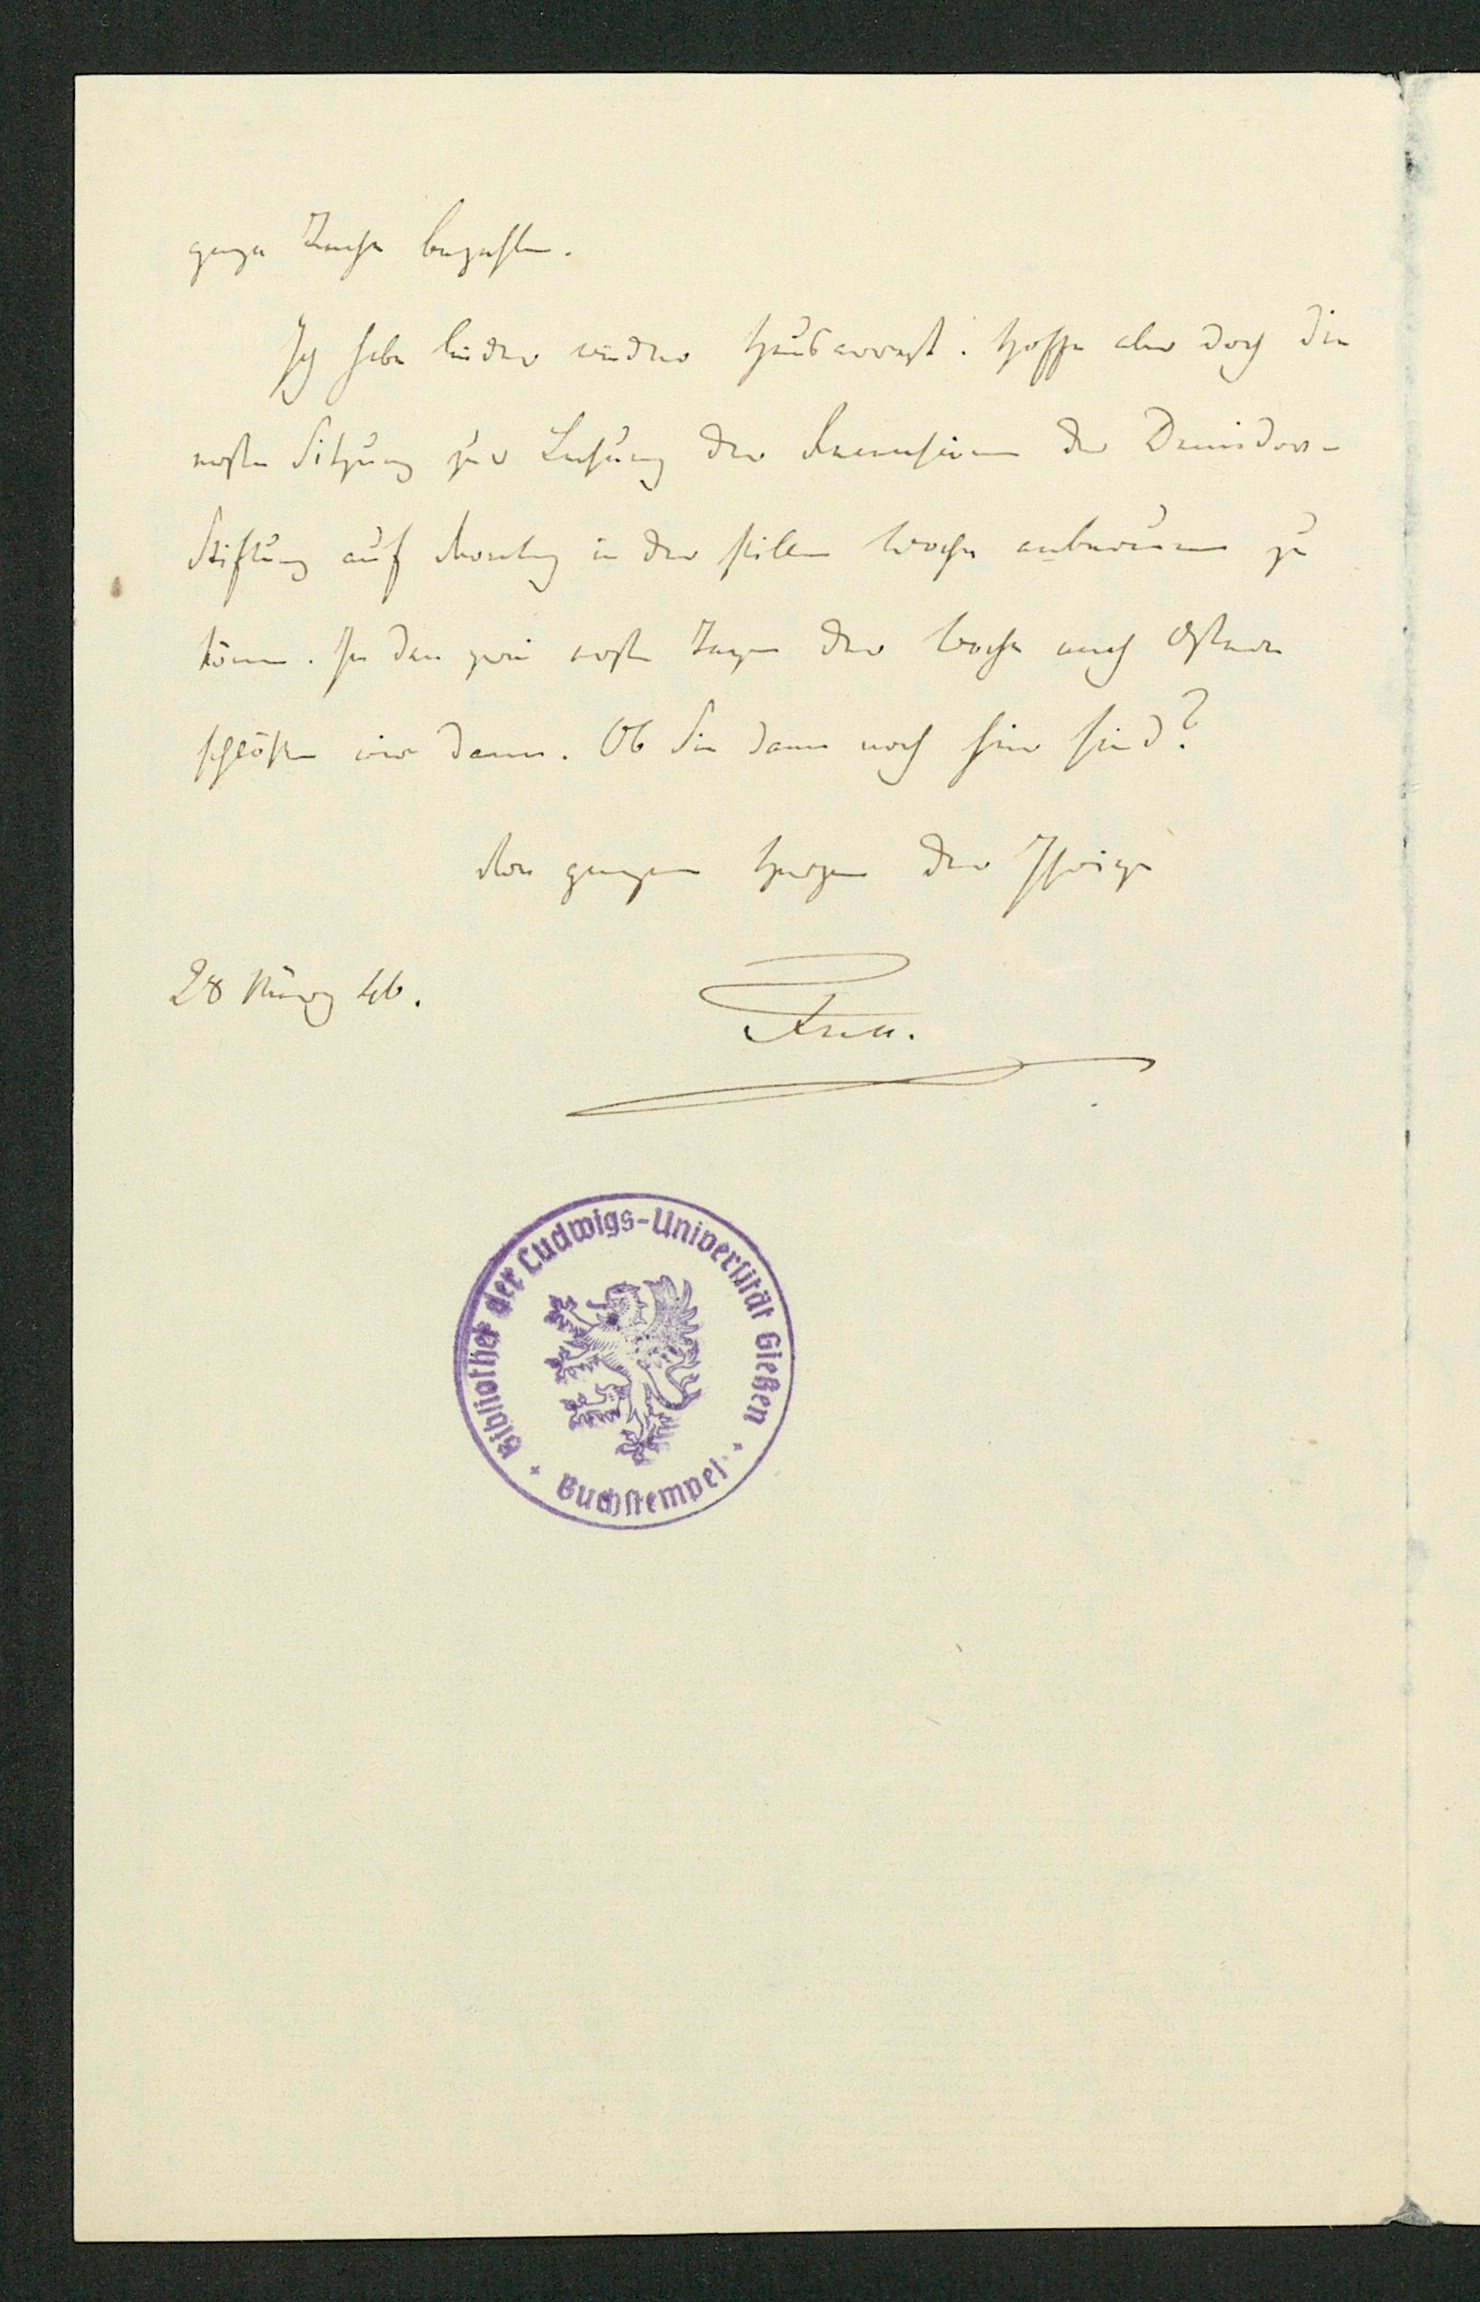 ganze Sache bezahlen.
Ich habe leider wieder Hausarrest. Hoffe aber doch die
erste Sitzung zur Lesung der Recensionen der Demidow-
Stiftung auf Montag in der stillen Woche anberaumen zu
können. In den zwei ersten Tagen der Woche nach Ostern
schlößen wir dann. Ob Sie dann noch hier sind?
Von ganzem Herzen der Ihrige
28 März 46.
Bibliothek der Ludwigs-Universität Gießen
Buchstempel